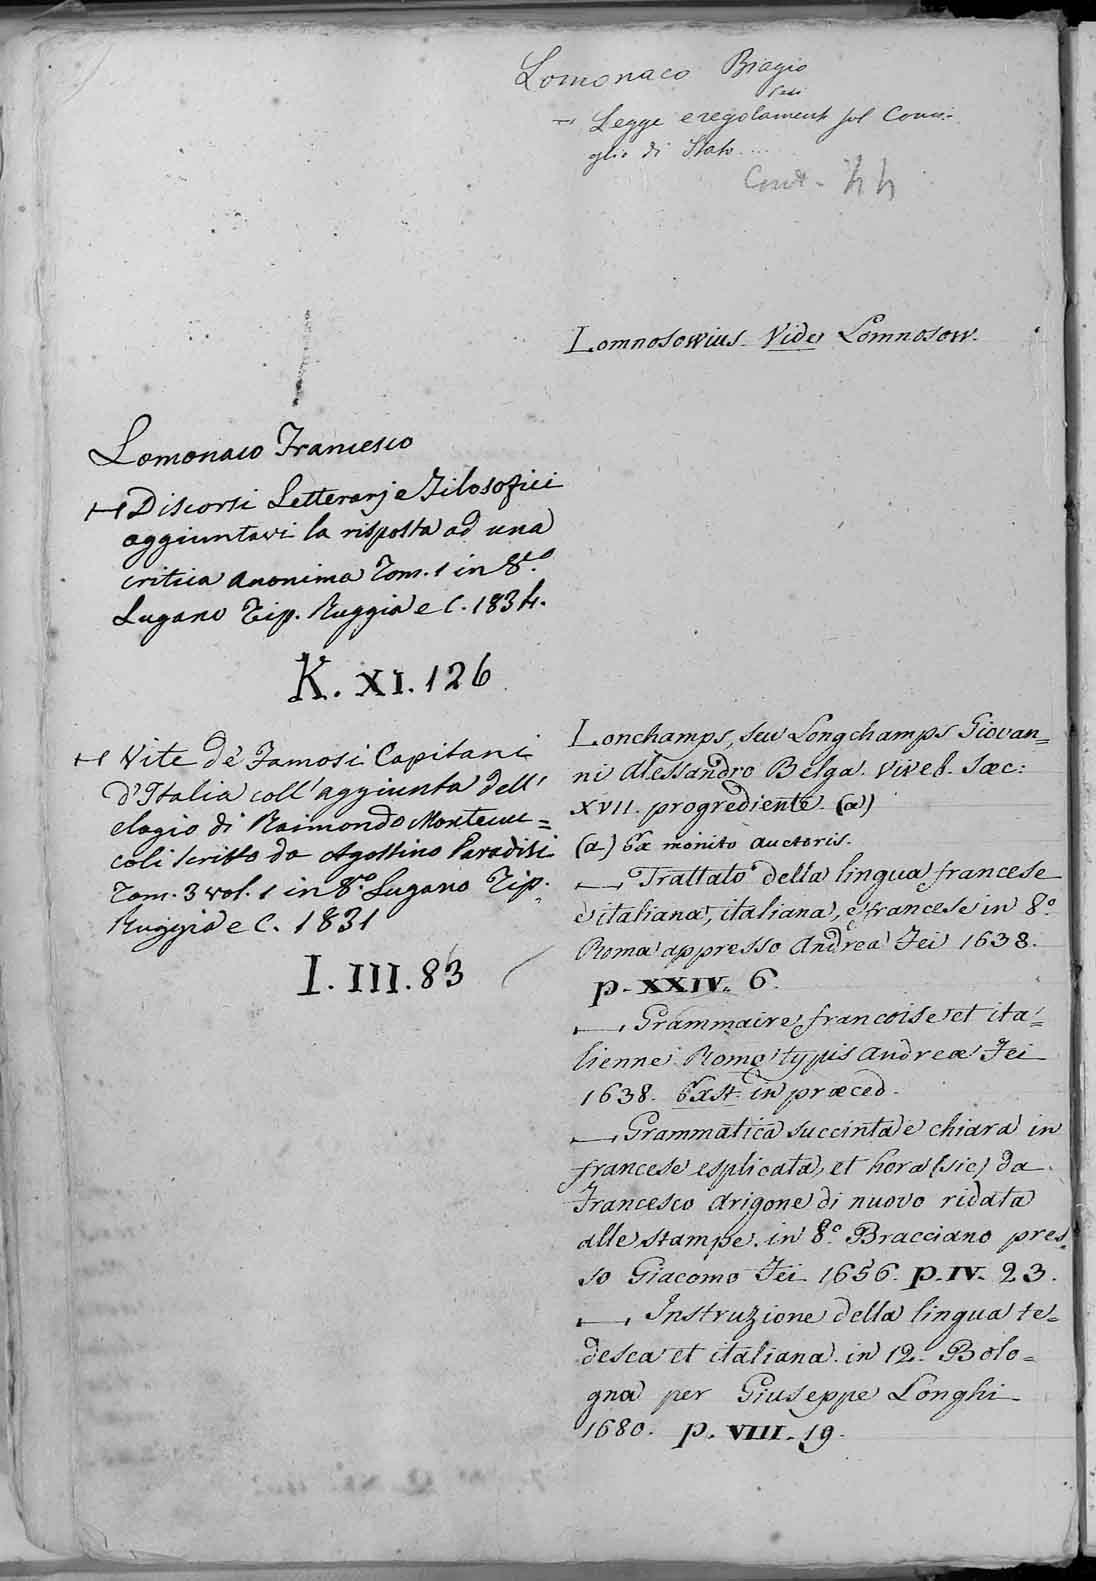 Lomonaco Biagio
Legge e regolament sul Consi-
glio di Stato....
Cont. 44
Lomnosowius. Vide Lomnosow.
Lomonaco Francesco
Discorsi Letterarj e Filosofici
aggiuntavi la risposta ad una
critica anonima Tom. 1 in 8.vo
Lugano Tip. Ruggia e C. 1834.
K. XI. 126
Vite de' Famosi Capitani
d'Italia coll'aggiunta dell'
elogio di Raimondo Montecuc=
coli scritto da Agostino Paradisi
Tom. 3 vol. 1 in 8.vo Lugano Tip.
Ruggia e C. 1831
I. III. 83
Lonchamps, seu Longchamps Giovan=
ni Alessandro Belga. viveb. Sæc:
XVII. progrediente. (a)
(a) Ex monito auctoris.
Trattato della lingua francese
e italiana, italiana, e francese in 8.o
Roma appresso Andrea Fei 1638.
p. XXIV. 6.
Grammaire francoise et ita=
lienne. Rome typis Andreæ Fei
1638. Exst. in præced.
Grammatica succinta e chiara in
francese esplicata, et hora (sic) da
Francesco Arigone di nuovo ridata
alle stampe. in 8.o Bracciano pres=
so Giacomo Fei 1656. p. IV. 23.
Instruzione della lingua te=
desca et italiana. in 12. Bolo=
gna per Giuseppe Longhi
1680. p. VIII. 19.